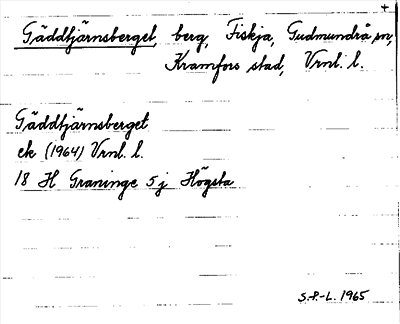 +
Gäddtjärnsberget, berg, Fiskja, Gudmundrå sn,
Kramfors stad, Vrnl. l.
Gäddtjärnsberget
ek (1964) Vrnl. l.
18 H Graninge 5 j Högsta
S.-P.-L. 1965